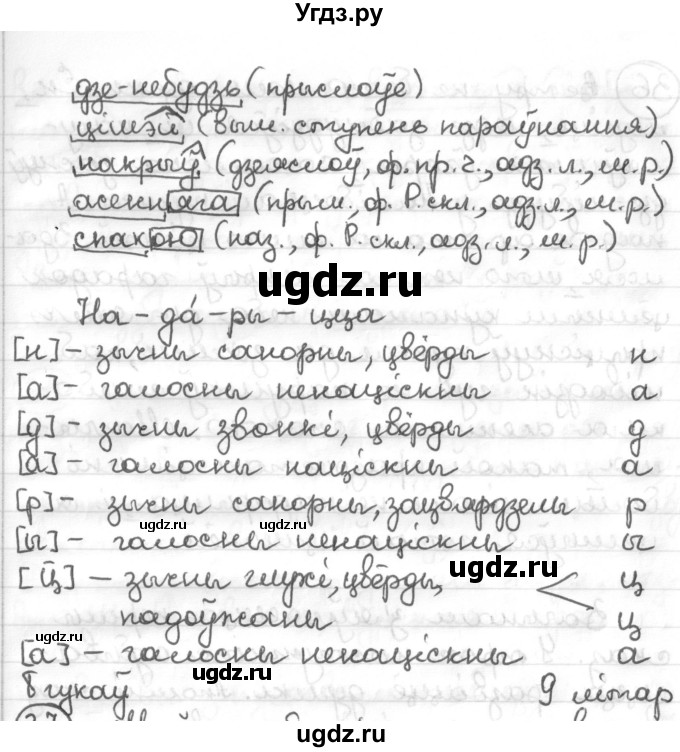 Угдз.ру
дзе-небудзь (прыслоўе)
цішэй (выш. ступень параўнання)
накрыў (дзеяслоў, ф. пр. ч., адз. л., м. р.)
асенняга (прым., ф. Р. скл., адз. л., м. р.)
спакою (наз., ф. Р. скл., адз. л., м. р.)
ugdz.ru
На-да́-ры-цца
[н] - зычны санорны, цвёрды н
[а] - галосны ненаціскны а
[д] - зычны звонкі, цвёрды д
[а] - галосны націскны а
[р] - зычны санорны, зацвярдзелы р
ugdz.ru ugdz.ru
[ы] - галосны ненаціскны ы
[ц̄] - зычны глухі, цвёрды, ц
ugdz.ru
падоўжаны ц
ugdz.ru
[а] - галосны ненаціскны а
8 гукаў 9 літар
ugdz.ru